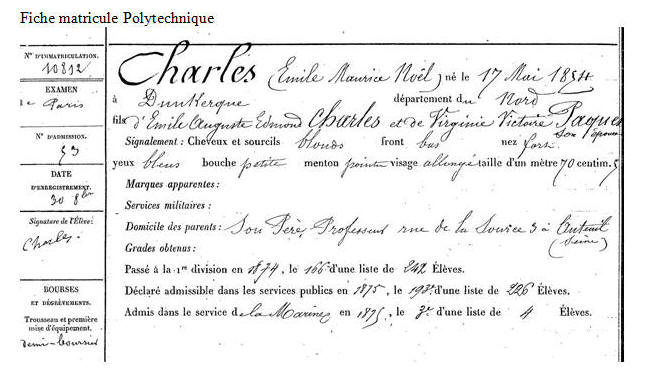 Fiche matricule Polytechnique
N° D'IMMATRICULATION.
10812
EXAMEN
de Paris
N° D'ADMISSION.
53
DATE
D'ENREGISTREMENT.
30 8bre
Signature de l'Élève:
Charles.
BOURSES
ET DÉGRÈVEMENTS.
Trousseau et première
mise d'équipement.
demi-boursier
Charles (Emile Maurice Noël) né le 17 Mai 1854
à Dunkerque département du Nord
fils d'Emile Auguste Edmond Charles et de Virginie Victoire Paques
son épouse
Signalement: Cheveux et sourcils blonds front bas nez fort
yeux bleus bouche petite menton pointu visage allongé taille d'un mètre 70 centim. 5
Marques apparentes:
Services militaires:
Domicile des parents: Son Père, Professeur rue de la Source 3 à Auteuil
(Seine)
Grades obtenus:
Passé à la 1re division en 1874, le 166e d'une liste de 242 Élèves.
Déclaré admissible dans les services publics en 1875, le 193e d'une liste de 226 Élèves.
Admis dans le service de la Marine en 1875, le 3e d'une liste de 4 Élèves.